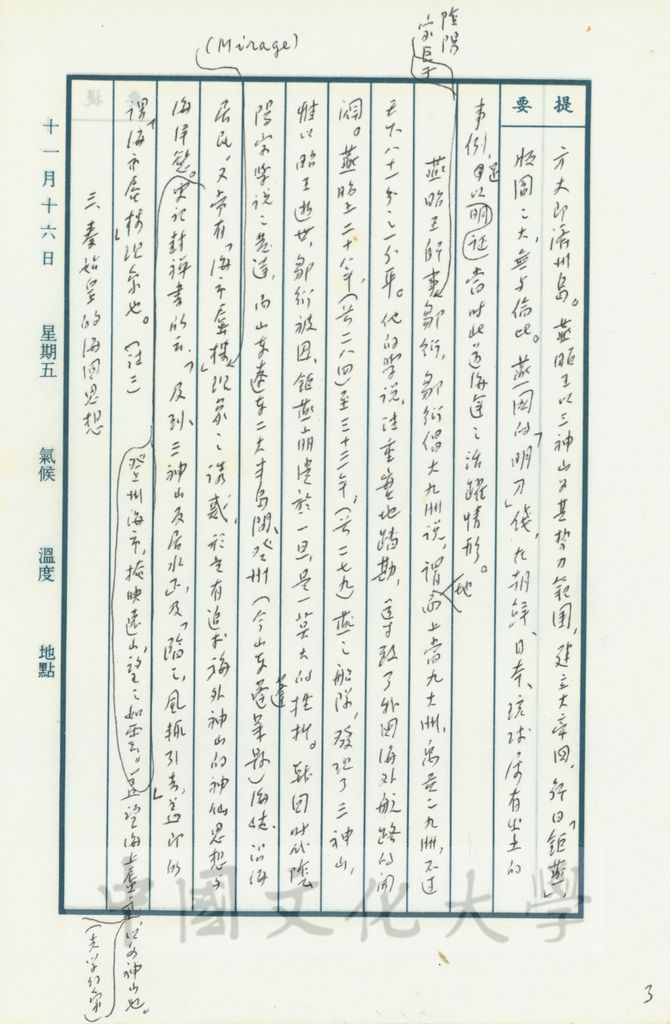 提要
方丈即瀛州島。燕昭王以三神山為其勢力範圍,建立大帝國,
版圖之大,無與倫比。燕國的「明刀」錢,在朝鮮、日本、琉球
事例,
當時此一道海
之活躍情形。
陰陽
燕昭王師事鄒衍,鄒衍倡大九洲說,謂地上當九大洲,禹貢之九洲,不過
天下八十一分之一分耳。他的學說,注重實地踏勘,導致了外國海外航路的開
闢。燕昭王二十八年,(前二八四)至三十三年,(前二七九)燕之船隊,發現了三神山,
惟以昭王逝世,鄒衍被囚,鉅燕崩潰於一旦,是一莫大的挫折。戰國時代陰
陽家學說之普遍,而山東遼東二大半島間,登州(今山東蓬萊縣)海陸,沿海
(Mirage)
居民,又常有「海市蜃樓」現象之誘惑,於是有追求海外神山的神仙思想
史記封禪書所云:「及到,三神山反居水下,及「臨之,風輒引去」,
謂「海市蜃樓」現象也。(註二)
登州海市,掩映遠山,望之如雲。
三 秦始皇的海國思想
十一月十六日 星期五 氣候 溫度 地點
中國文化大學
3